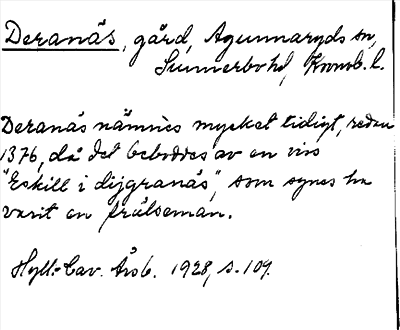 Deranäs, gård, Agunnaryds sn,
Sunnerbo hd, Kronob. l.
Deranäs nämnes mycket tidigt, redan
1376, då det beboddes av en viss
"Eskill i dijgranäs", som synes ha
varit en frälseman.
Hylt-Cav. Årsb. 1928, s. 109.